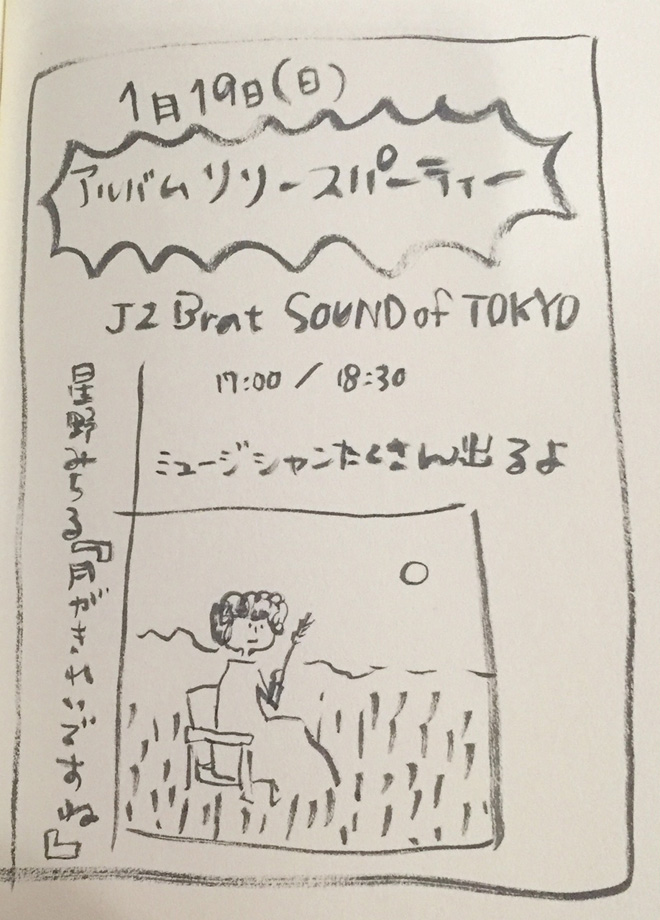 1月19日(日)
アルバムリリースパーティー
J2 Brat SOUND of TOKYO
17:00 / 18:30
ミュージシャンたくさん出るよ
星野みちる『月がきれいですね』